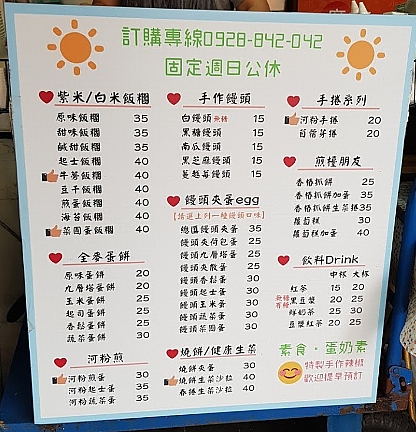 訂購專線0928-842-042
固定週日公休
紫米/白米飯糰
原味飯糰 35
甜味飯糰 35
鹹甜飯糰 35
起士飯糰 40
牛蒡飯糰 40
豆干飯糰 40
煎蛋飯糰 40
海苔飯糰 40
菜圃蛋飯糰 40
全麥蛋餅
原味蛋餅 20
九層塔蛋餅 20
玉米蛋餅 25
起司蛋餅 25
香鬆蛋餅 25
蔬菜蛋餅 30
河粉煎
河粉煎蛋 30
河粉起士蛋 35
河粉蔬菜蛋 35
手作饅頭
白饅頭 無糖 15
黑糖饅頭 15
南瓜饅頭 15
黑芝麻饅頭 15
蔓越莓饅頭 15
饅頭夾蛋egg
【請選上列一種饅頭口味】
總匯饅頭夾蛋 35
饅頭夾荷包蛋 25
饅頭九層塔蛋 25
饅頭夾散蛋 25
饅頭香鬆蛋 30
饅頭起士蛋 30
饅頭玉米蛋 30
饅頭蔬菜蛋 30
饅頭菜圃蛋 30
燒餅/健康生菜
燒餅夾蛋 30
燒餅生菜沙拉 40
春捲生菜沙拉 40
手捲系列
河粉手捲 20
苜蓿芽捲 20
煎檯朋友
香椿抓餅 25
香椿抓餅加蛋 35
香椿抓餅生菜捲 35
蘿蔔糕 30
蘿蔔糕加蛋 40
飲料Drink
中杯 大杯
紅茶 15 20
無糖 有糖 黑豆漿 20 25
鮮奶茶 25 30
豆漿紅茶 20 25
素食・蛋奶素
特製手作辣椒
歡迎提早預訂